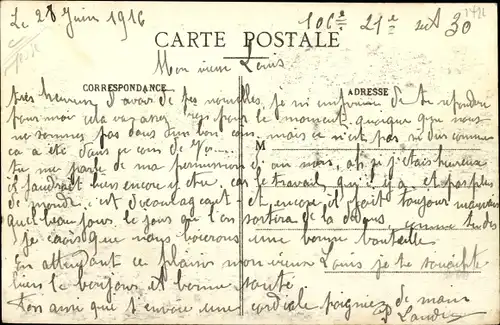 Le 28 Juin 1916 106e 21e 30
CARTE POSTALE
Mon vieux Louis
CORRESPONDANCE ADRESSE
très heureux d'avoir de tes nouvelles je m'empresse de te répondre
pour moi cela va assez bien pour le moment quoique que nous
ne sommes pas dans un bon coin mais ce n'est pas si dur comme
ça a été dans ce coin de
M
tu me parle de ma permission d'un mois, ah je j'étais heureux
il faudrait bien encore y être car le travail qu'il y a et pas plus
de monde c'est décourageant et encore il fait toujour mauvais
quel beau jour le jour que l'on sortira de la comme tu dis
je crois que nous boierons une bonne bouteille
En attendant ce plaisir mon vieux Louis je te souhaite
bien le bonjour et bonne santé
Ton ami qui t'envoie une cordiale poignée de main